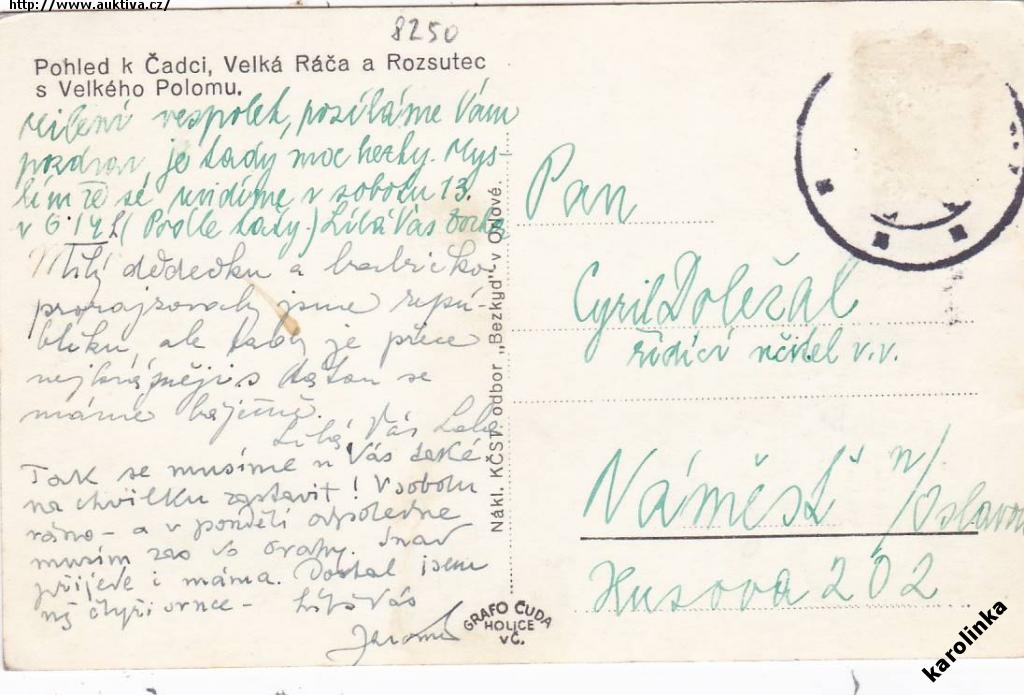 http://www.auktiva.cz/
8250
Pohled k Čadci, Velká Ráča a Rozsutec
s Velkého Polomu.
Milení vespolek, posíláme Vám
pozdrav, je tady moc hezky. Mys-
lím že se uvidíme v sobotu 13.
v 6.14 h (Podle táty) Líbá Vás
Milý dědečku a babičko
jsme repu-
bliku, ale tady je přece
nejkrásněji s tátou se
máme báječně.
Líbá Vás
Tak se musíme u Vás také
na chvilku zastavit! V sobotu
ráno - a v pondělí odpoledne
musím zas do Prahy. Snad
přijede i máma. Dostal jsem
čtyři
Líbá Vás
Jaromír
Nákl. KČST. odbor „Bezkyd" v Orlové.
GRAFO ČUDA
HOLICE
v Č.
Pan
Cyril Doležal
řídící učitel v.v.
Náměšť n/Oslavou
Husova 202
karolinka